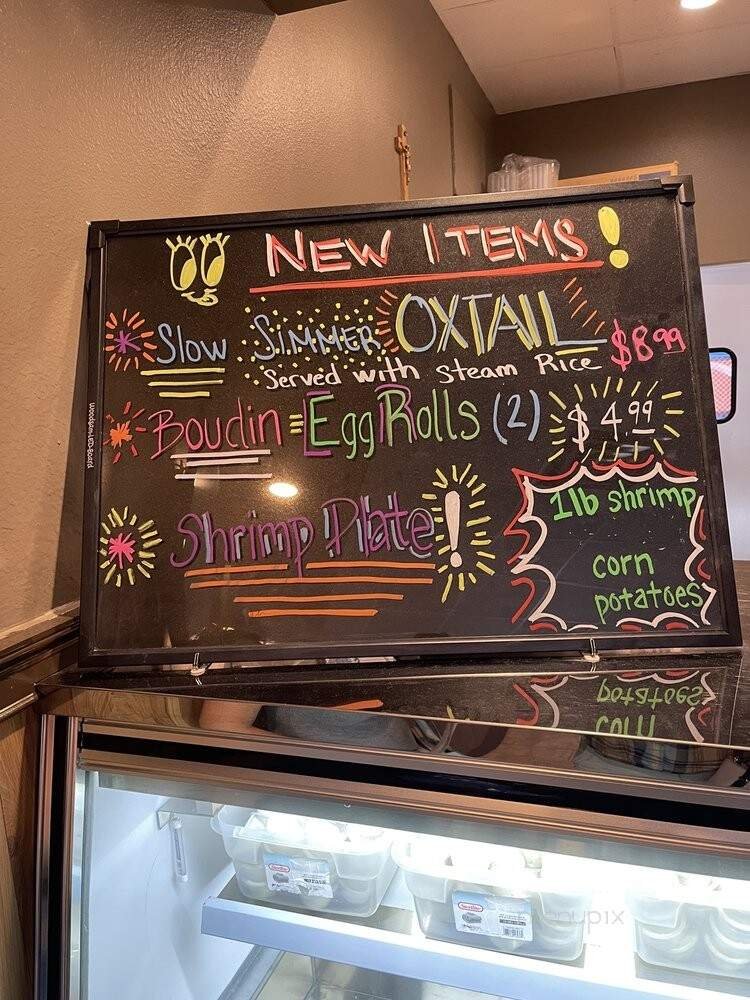 NEW ITEMS!
Slow Simmer OXTAIL $8.99
Served with steam Rice
Boudin Egg Rolls (2) $4.99
Shrimp Plate!
1lb shrimp
corn
potatoes
Woodsam LED Board